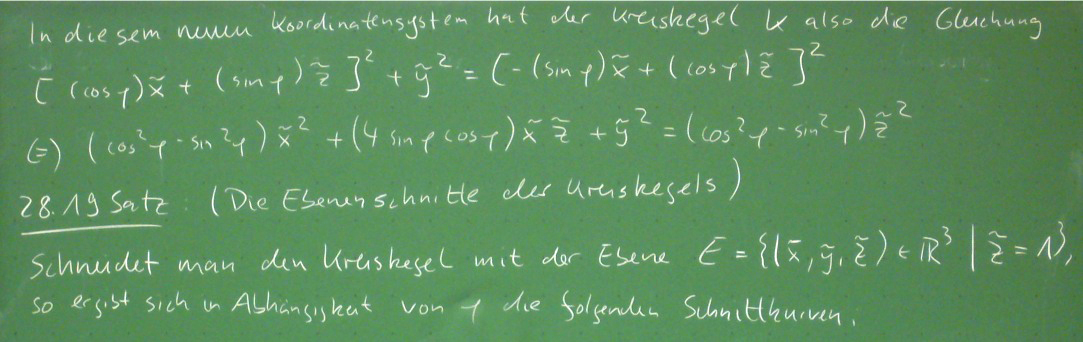 In diesem neuen Koordinatensystem hat der Kreiskegel K also die Gleichung
[(cos φ) x̃ + (sin φ) z̃]² + ỹ² = [-(sin φ) x̃ + (cos φ) z̃]²
⇔) (cos²φ - sin²φ) x̃² + (4 sin φ cos φ) x̃ z̃ + ỹ² = (cos²φ - sin²φ) z̃²
28.19 Satz: (Die Ebenenschnitte des Kreiskegels)
Schneidet man den Kreiskegel mit der Ebene E = {(x̃, ỹ, z̃) ∈ ℝ³ | z̃ = 1},
so ergibt sich in Abhängigkeit von φ die folgenden Schnittkurven.